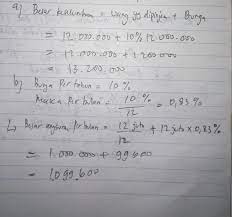 a) Besar keseluruhan = Uang yg dipinjam + Bunga
= 12.000.000 + 10% 12.000.000
= 12.000.000 + 1.200.000
= 13.200.000
b) Bunga Per tahun = 10%
Per bulan = 10% / 12 = 0,83%
Besar angsuran Per bulan = 12 juta / 12 + 12 juta x 0,83%
= 1.000.000 + 99.600
= 1.099.600